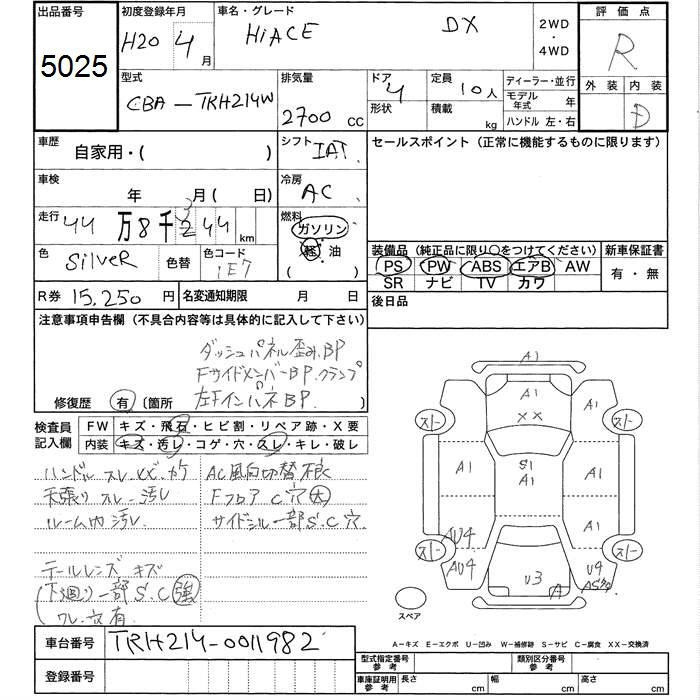 出品番号 初度登録年月 車名・グレード 評価点
5025 H20 4月 HiACE DX 2WD・4WD R
型式 排気量 ドア 4 定員 10人 ディーラー・並行 外装 内装
CBA-TRH214W 2700 cc 形状 積載 kg モデル年式 年 D
ハンドル 左・右
車歴 自家用・( ) シフト IAT セールスポイント(正常に機能するものに限ります)
車検 年 月( 日) 冷房 AC
走行 44万8千244km 3 燃料 ガソリン
軽油
( )
色 SilveR 色替 色コード 1E7
装備品(純正品に限り○をつけてください) 新車保証書
PS PW ABS エアB AW 有・無
SR ナビ TV カワ
R券 15,250円 名変通知期限 月 日 後日品
注意事項申告欄(不具合内容等は具体的に記入して下さい)
ダッシュパネル歪み.BP
FサイドメンバーBP.クランプ
修復歴 有 〔箇所 左Fインパネ BP.
検査員記入欄 FW キズ・飛石・ヒビ割・リペア跡・X要
内装 キズ・汚レ・コゲ・穴・スレ・キレ・破レ
ハンドル スレ AC風向切替不良
天張り スレ汚レ Fフロア C穴(大)
ルーム内汚レ. サイドシル一部S.C穴.
テールレンズ キズ
(下廻り)一部S.C(強)
ワレ.
A1
A1
XX
A1 A1
スト スト
A1 S1 A1 A1
A1
AU4
スト スト
AU4 U3 A U4
スペア
A-キズ E-エクボ U-凹み W-補修跡 S-サビ C-腐食 XX-交換済
車台番号 TRH214-0011982
登録番号
型式指定番号 参考 類別区分番号 参考
車庫証明用 参考 長さ cm 幅 cm 高さ cm